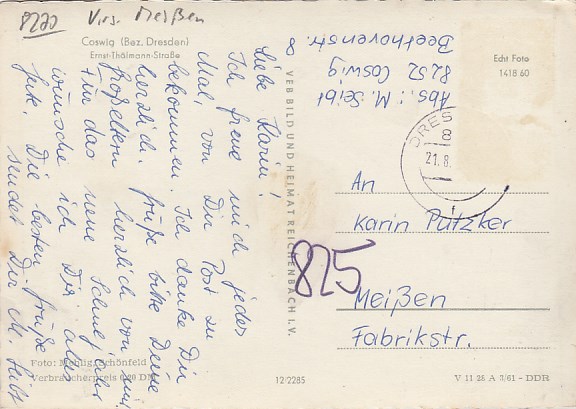 8270 Vers. Meißen
Coswig (Bez. Dresden)
Ernst-Thälmann-Straße
Liebe Karin!
Ich freue mich jedes
Mal, von Dir Post zu
bekommen. Ich danke Dir
herzlich. Grüße bitte Deine
Großeltern herzlich von mir.
Für das neue Schuljahr
wünsche ich Dir alles
Gute. Die besten Grüße
sendet Dir M. Seibt
Foto: Schönfeld
Verbraucherpreis 0,20 DM
VEB BILD UND HEIMAT REICHENBACH I. V.
12/2285
Abs.: M. Seibt
8252 Coswig
Beethovenstr. 8
Echt Foto
1418 60
DRES
8
21.8.
An
Karin Putzker
825
Meißen
Fabrikstr.
V 11 28 A 3/61 - DDR